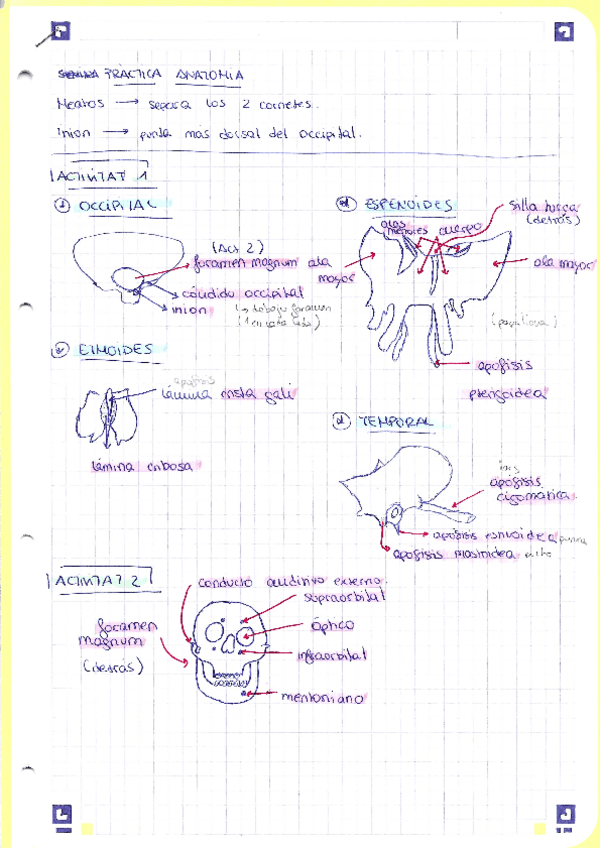 PRÁCTICA ANATOMIA
Meatos → separa los 2 cornetes.
inion → punta más dorsal del occipital.
ACTIVITAT 1
OCCIPITAL
(Act 2)
foramen magnum
cóndido occipital
inion
↳ debajo foramen
(1 en cada lado)
ESPENOIDES
alas menores
cuerpo
Silla turca
(detrás)
ala mayor
ala mayor
apofisis
pterigoidea
ETMOIDES
apofisis
lámina crista gali
lámina cribosa
TEMPORAL
apófisis
cigomatica
apófisis estiloidea
apófisis mastoidea
ACTIVITAT 2
conducto auditivo externo
supraorbital
óptico
infraorbital
mentoniano
foramen
magnum
(detrás)